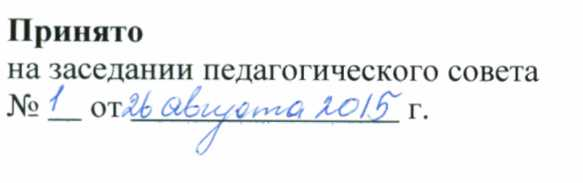 Принято
на заседании педагогического совета
№ 1 от 26 августа 2015 г.